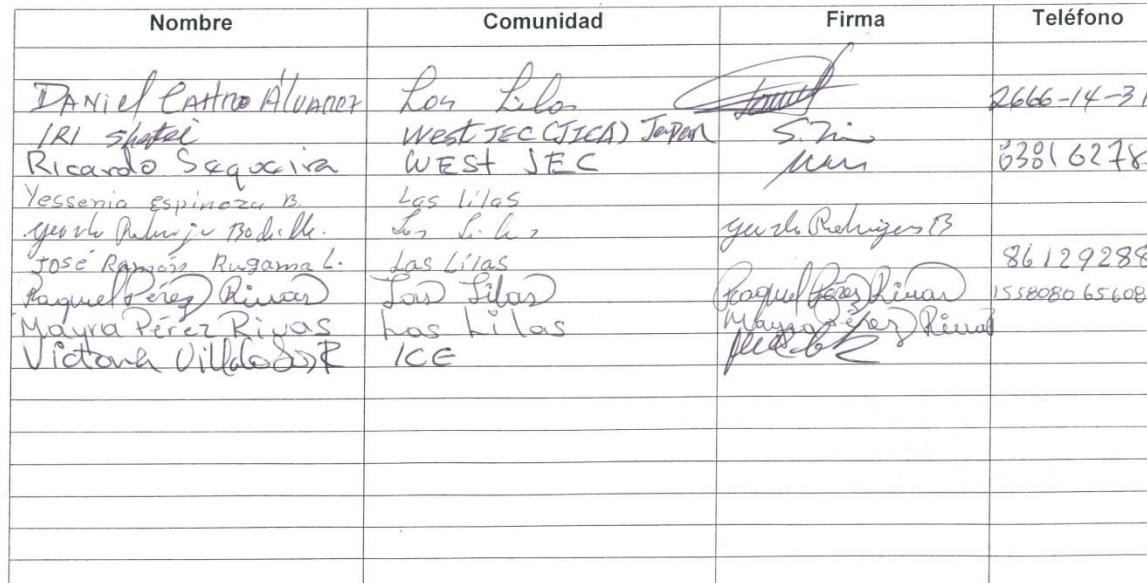 Nombre Comunidad Firma Teléfono
Daniel Castro Alvarez Las Lilas 2666-14-31
IRI West JEC (JICA) Japan S.
Ricardo Sequeira WEST JEC 83816278
Yessenia Espinoza B. Las lilas
Rodriguez B
José Ramón Rugama L. Las Lilas 86129288
Raquel Pérez Rivas Las Lilas Raquel Pérez Rivas 155808065608
Mayra Pérez Rivas Las Lilas Mayra Pérez Rivas
Victoria Villalobos R ICE